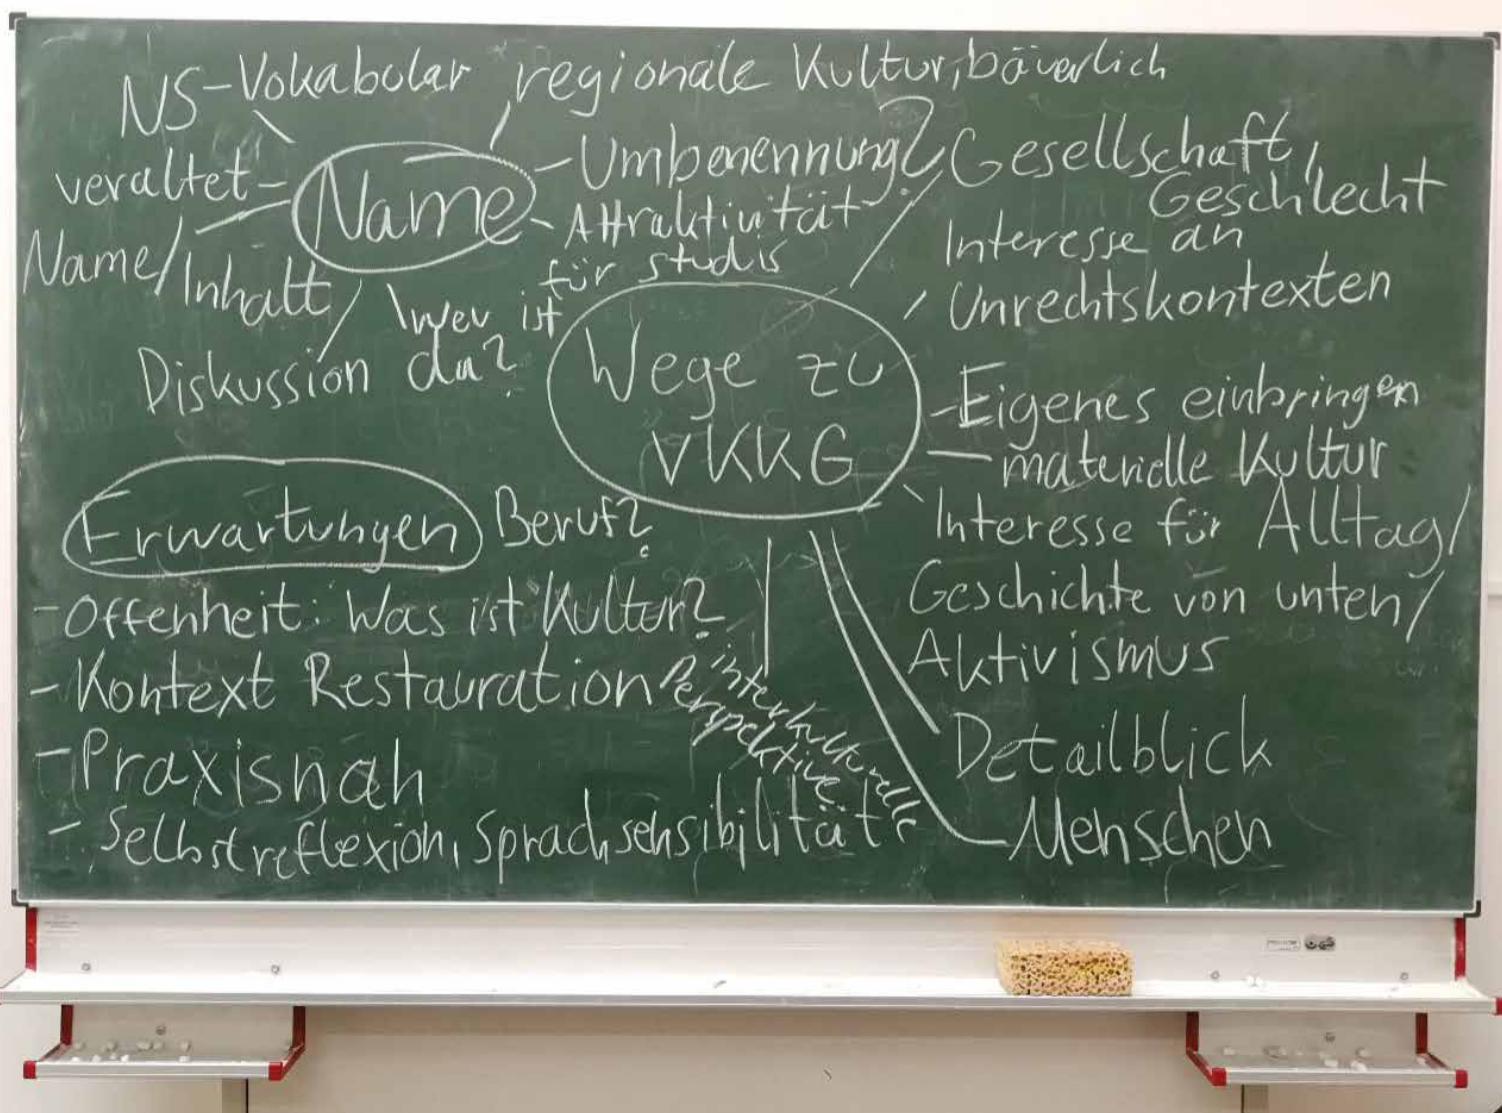 NS-Vokabular
regionale Kultur, bäuerlich
veraltet
Name
Umbenennung?
Attraktivität
für Studis
Name/Inhalt
Diskussion
wer ist
da?
Wege zu
VKKG
Gesellschaft,
Geschlecht
Interesse an
Unrechtskontexten
Eigenes einbringen
materielle Kultur
Interesse für Alltag/
Geschichte von unten/
Aktivismus
Detailblick
Menschen
interkulturelle
Perspektive
Erwartungen
Beruf?
- Offenheit: Was ist Kultur?
- Kontext Restauration
- Praxisnah
- Selbstreflexion, Sprachsensibilität